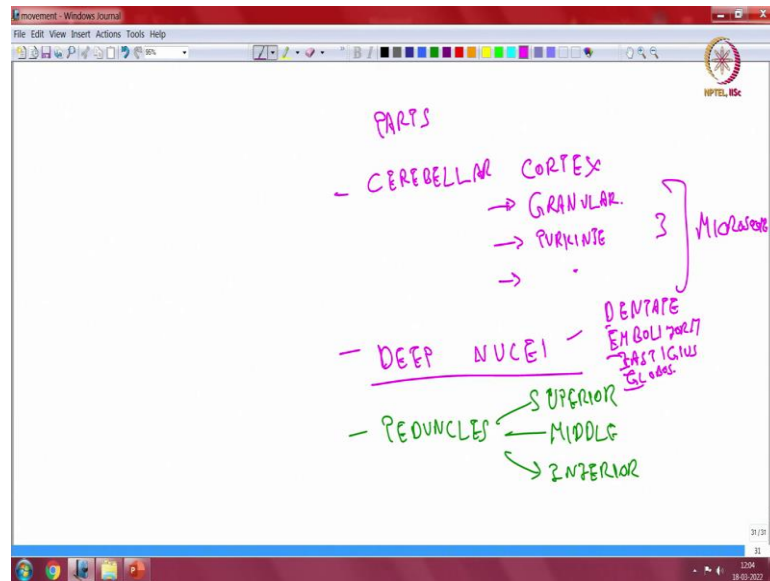 movement - Windows Journal
File Edit View Insert Actions Tools Help
95%
B I
NPTEL, IISc
PARTS
- CEREBELLAR CORTEX
→ GRANULAR.
→ PURKINJE 3
→
- DEEP NUCEI - DENTATE
EMBOLIFORM
FASTIGIUS
- PEDUNCLES SUPERIOR
MIDDLE
INFERIOR
31/31
31
12:04
18-03-2022